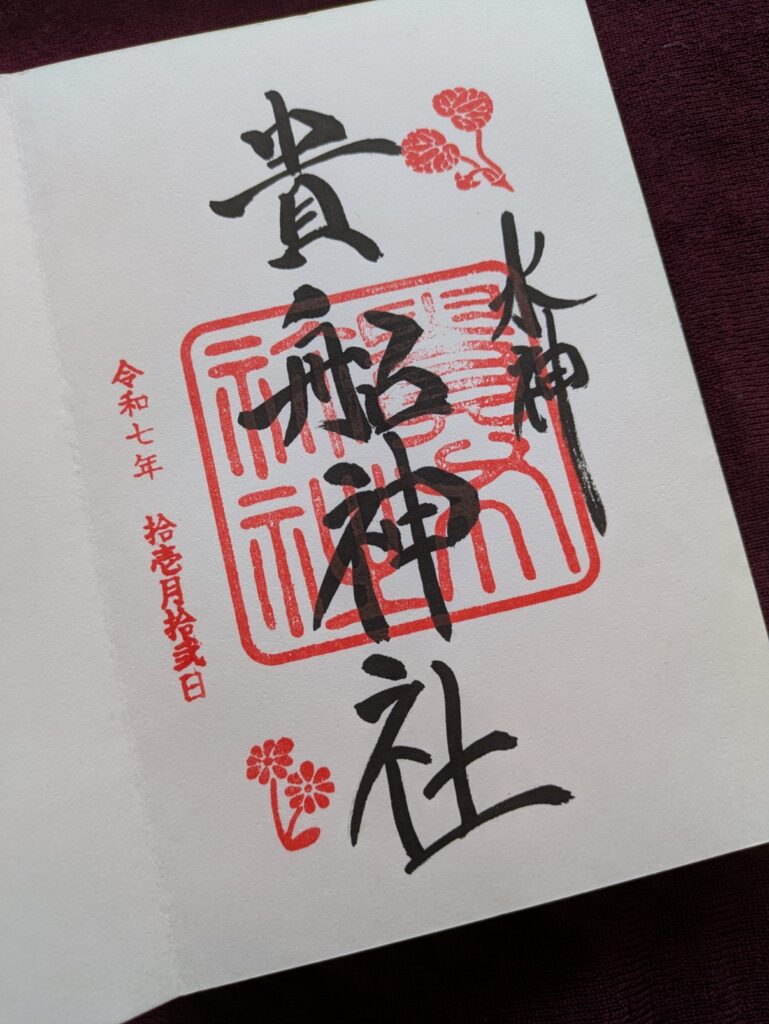 水神
貴船神社
令和七年 拾壱月拾弐日